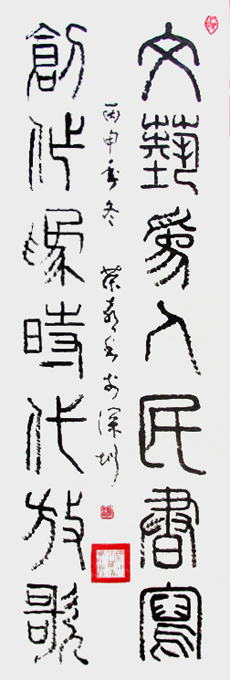 文藝為人民書寫
創作為時代放歌
丙申年冬 榮書於深圳